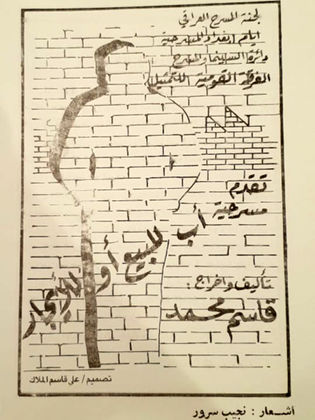 لجنة المسرح العراقي
ايام بغداد المسرحية
دائرة السينما والمسرح
الفرقة القومية للتمثيل
تقدم
مسرحية
أب للبيع أو للأيجار
تأليف واخراج :
قاسم محمد
تصميم / علي قاسم الملاك
اشعار : نجيب سرور